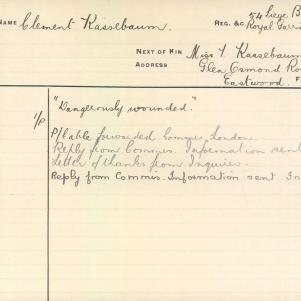 NAME Clement Kasselbaum. REG. &C. 54 Siege B
Royal Garri
NEXT OF KIN Miss Y Kasselbaum
ADDRESS Glen Osmond Ro
Eastwood. F
"Dangerously wounded."
1/P P/Cable forwarded Commis. London.
Reply from Commis. Information sent
Letter of thanks from Inquirer.
Reply from Commis. Information sent In